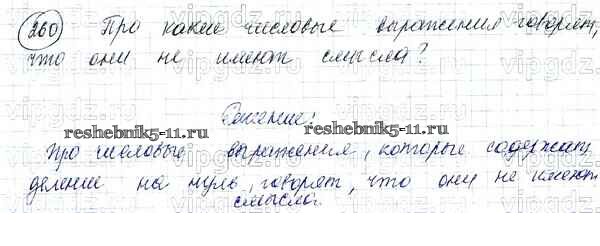 260 Про какие числовые выражения говорят,
что они не имеют смысла?
Решение:
reshebnik5-11.ru
reshebnik5-11.ru
Про числовые выражения, которые содержит
деление на нуль, говорят, что они не имеют
смысла.